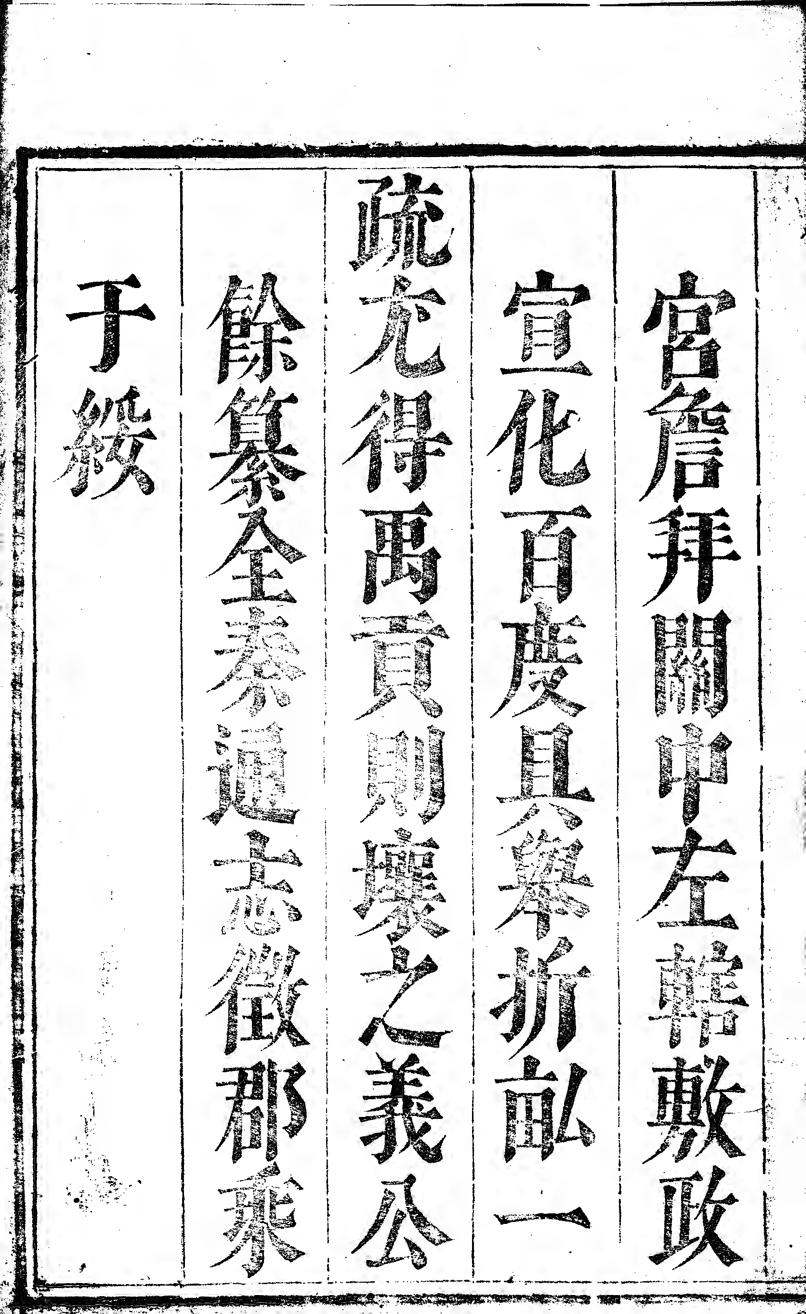 宮詹拜關中左轄敷政
宣化百度具舉折畝一
疏尤得禹貢則壤之義公
餘纂全秦通志徵郡乘
于綏